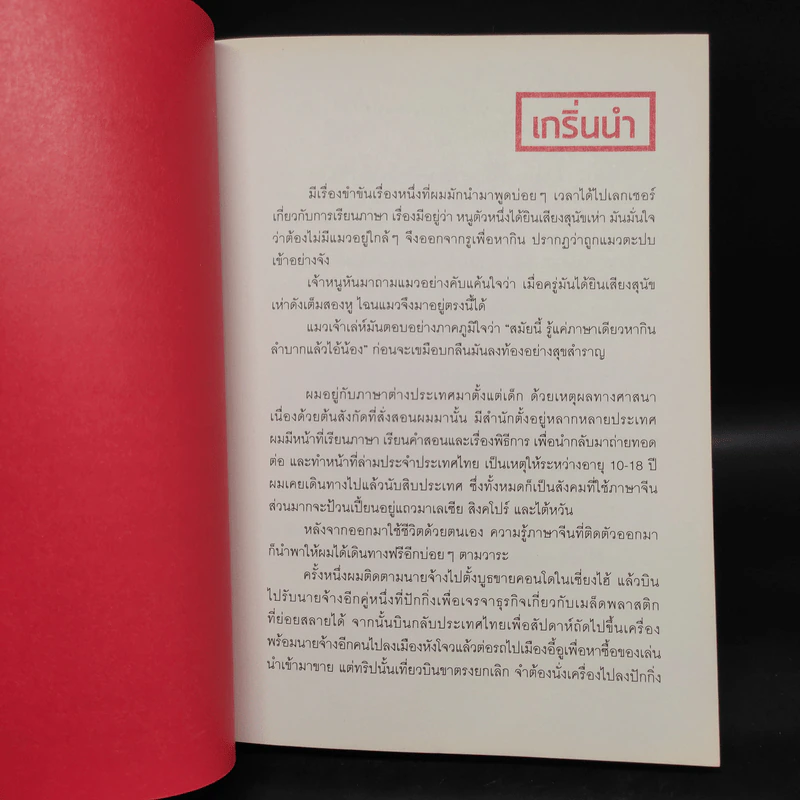 เกริ่นนำ
มีเรื่องขำขันเรื่องหนึ่งที่ผมมักนำมาพูดบ่อยๆ เวลาได้ไปเลกเชอร์
เกี่ยวกับการเรียนภาษา เรื่องมีอยู่ว่า หนูตัวหนึ่งได้ยินเสียงสุนัขเห่า มันมั่นใจ
ว่าต้องไม่มีแมวอยู่ใกล้ๆ จึงออกจากรูเพื่อหากิน ปรากฏว่าถูกแมวตะปบ
เข้าอย่างจัง
เจ้าหนูหันมาถามแมวอย่างคับแค้นใจว่า เมื่อครู่มันได้ยินเสียงสุนัข
เห่าดังเต็มสองหู ไฉนแมวจึงมาอยู่ตรงนี้ได้
แมวเจ้าเล่ห์มันตอบอย่างภาคภูมิใจว่า “สมัยนี้ รู้แค่ภาษาเดียวหากิน
ลำบากแล้วไอ้น้อง” ก่อนจะเขมือบกลืนมันลงท้องอย่างสุขสำราญ
ผมอยู่กับภาษาต่างประเทศมาตั้งแต่เด็ก ด้วยเหตุผลทางศาสนา
เนื่องด้วยต้นสังกัดที่สั่งสอนผมมานั้น มีสำนักตั้งอยู่หลากหลายประเทศ
ผมมีหน้าที่เรียนภาษา เรียนคำสอนและเรื่องพิธีการ เพื่อนำกลับมาถ่ายทอด
ต่อ และทำหน้าที่ล่ามประจำประเทศไทย เป็นเหตุให้ระหว่างอายุ 10-18 ปี
ผมเคยเดินทางไปแล้วนับสิบประเทศ ซึ่งทั้งหมดก็เป็นสังคมที่ใช้ภาษาจีน
ส่วนมากจะป้วนเปี้ยนอยู่แถวมาเลเซีย สิงคโปร์ และไต้หวัน
หลังจากออกมาใช้ชีวิตด้วยตนเอง ความรู้ภาษาจีนที่ติดตัวออกมา
ก็นำพาให้ผมได้เดินทางฟรีอีกบ่อยๆ ตามวาระ
ครั้งหนึ่งผมติดตามนายจ้างไปตั้งบูธขายคอนโดในเซี่ยงไฮ้ แล้วบิน
ไปรับนายจ้างอีกคู่หนึ่งที่ปักกิ่งเพื่อเจรจาธุรกิจเกี่ยวกับเมล็ดพลาสติก
ที่ย่อยสลายได้ จากนั้นบินกลับประเทศไทยเพื่อสัปดาห์ถัดไปขึ้นเครื่อง
พร้อมนายจ้างอีกคนไปลงเมืองหังโจวแล้วต่อรถไปเมืองอี้อูเพื่อหาซื้อของเล่น
นำเข้ามาขาย แต่ทริปนั้นเที่ยวบินขาตรงยกเลิก จำต้องนั่งเครื่องไปลงปักกิ่ง